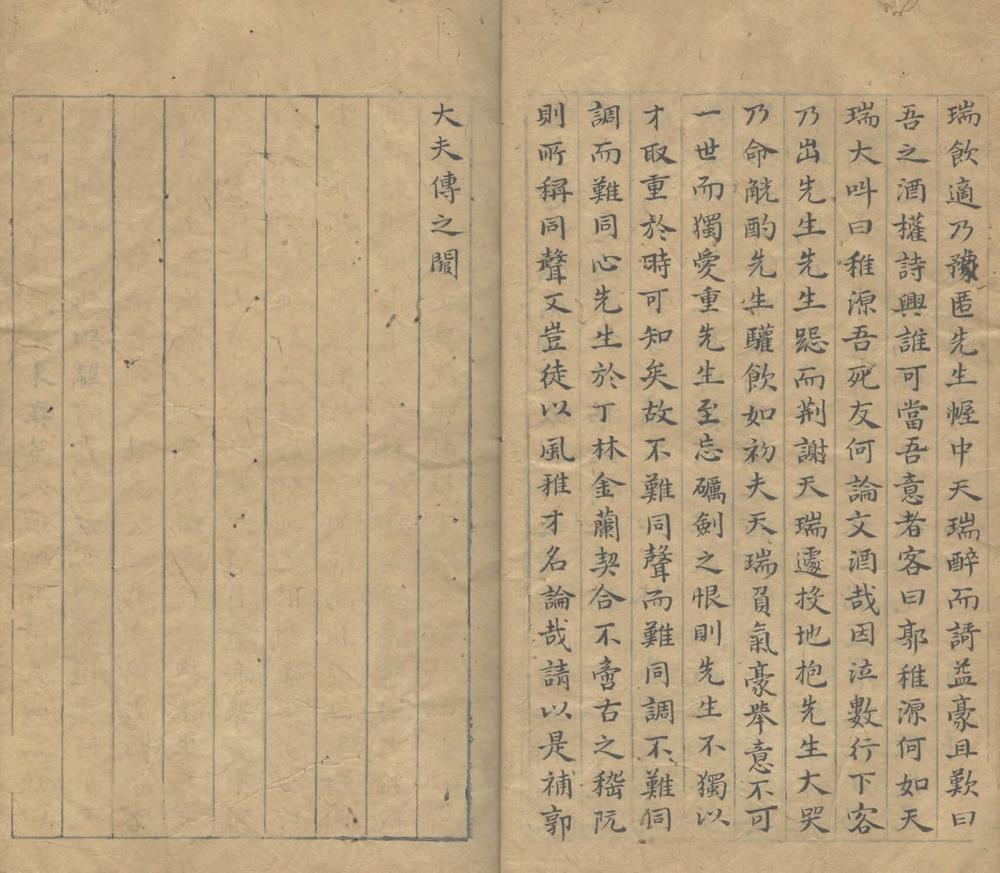 瑞飲適乃豫匿先生幄中天瑞醉而謌益豪且歎曰
吾之酒權詩興誰可當吾意者客曰郭稚源何如天
瑞大叫曰稚源吾死友何論文酒哉因泣數行下客
乃出先生先生跽而荆謝天瑞遽投地抱先生大哭
乃命觥酌先生驩飲如初夫天瑞負氣豪舉意不可
一世而獨愛重先生至忘礪劍之恨則先生不獨以
才取重於時可知矣故不難同聲而難同調不難同
調而難同心先生於丁林金蘭契合不啻古之嵇阮
則所稱同聲又豈徒以風雅才名論哉請以是補郭
大夫傳之闕